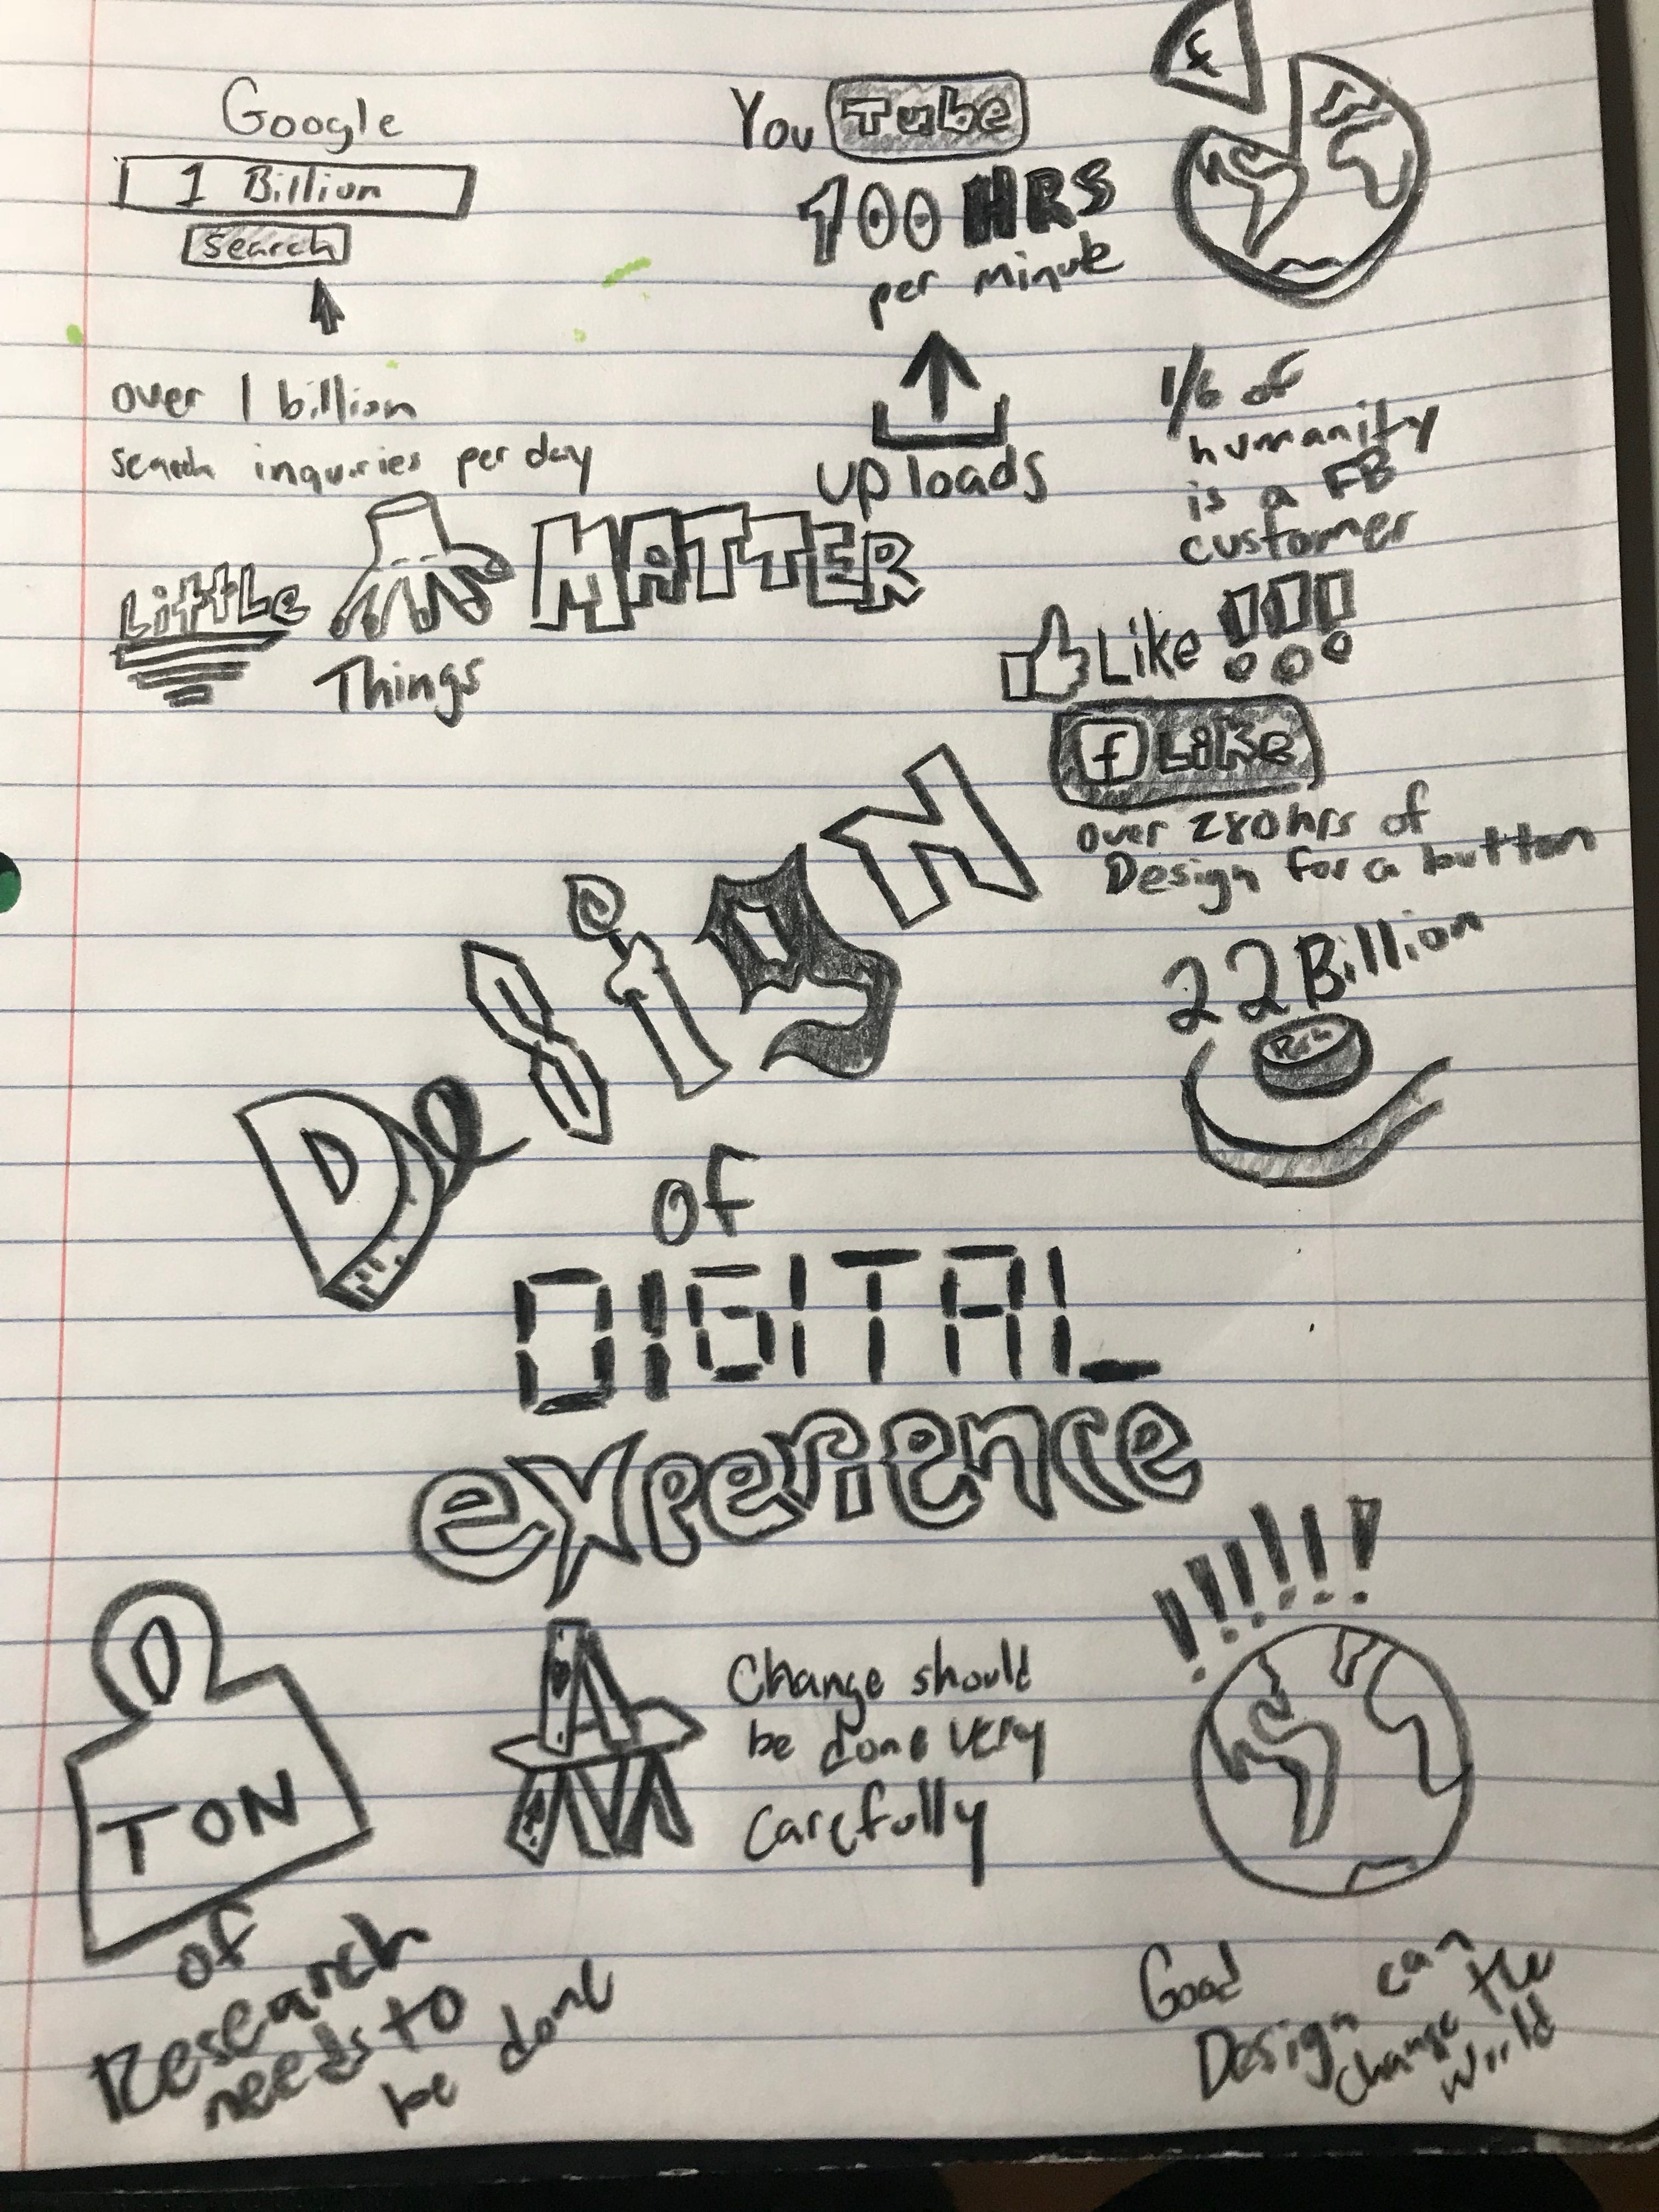 Google
1 Billion
Search
over 1 billion
search inquries per day
You Tube
100 HRS
per minute
uploads
f
1/6 of
humanity
is a FB
customer
LittLe MATTER
Things
Like !!!
f Like
over 280hrs of
Design for a button
22 Billion
DesigN
of
DIGITAL
experience
TON
of
Research
needs to
be done
Change should
be done very
carefully
!!!!!!
Good
Design can
change the
world